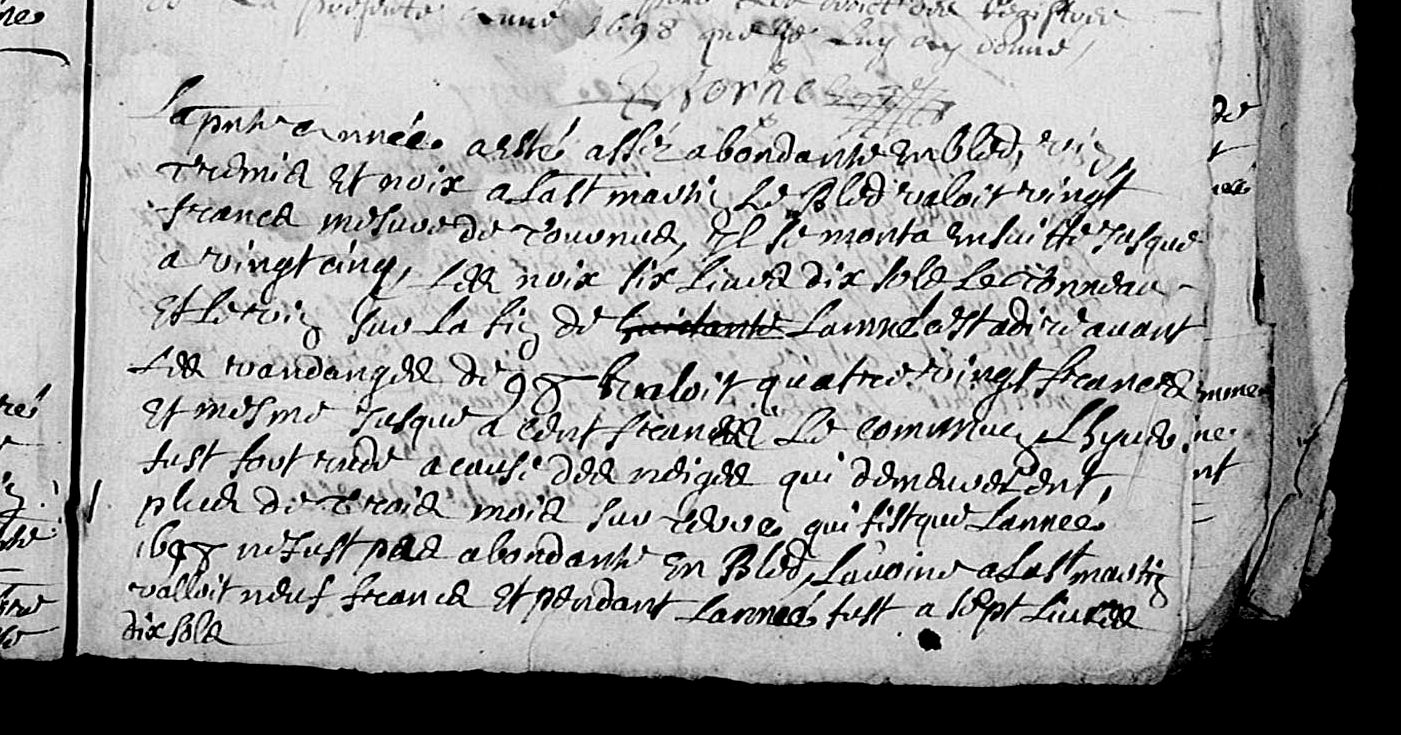 la presente année 1698 que je luy ay donné,
La pnte année a esté assez abondante en bled, vin,
tremis et noix a la st martin le bled valoit vingt
francs mesure de tournus, il se monta ensuitte jusque
a vingt cinq, les noix six livres dix sols le tonneau
et le vin sur la fin de lannée cest a dire avant
les vandanges de 98 valoit quatre vingt francs
et mesme jusque a cent francs le commun, Lhyver
fust fort rude a cause des neiges qui demeurerent,
plus de trois mois sur terre qui fist que lannee
1698 ne fust pas abondante en bled, Lavoine a la st martin
valloit neuf francs et pendant lannee fust a sept livres
dix sols